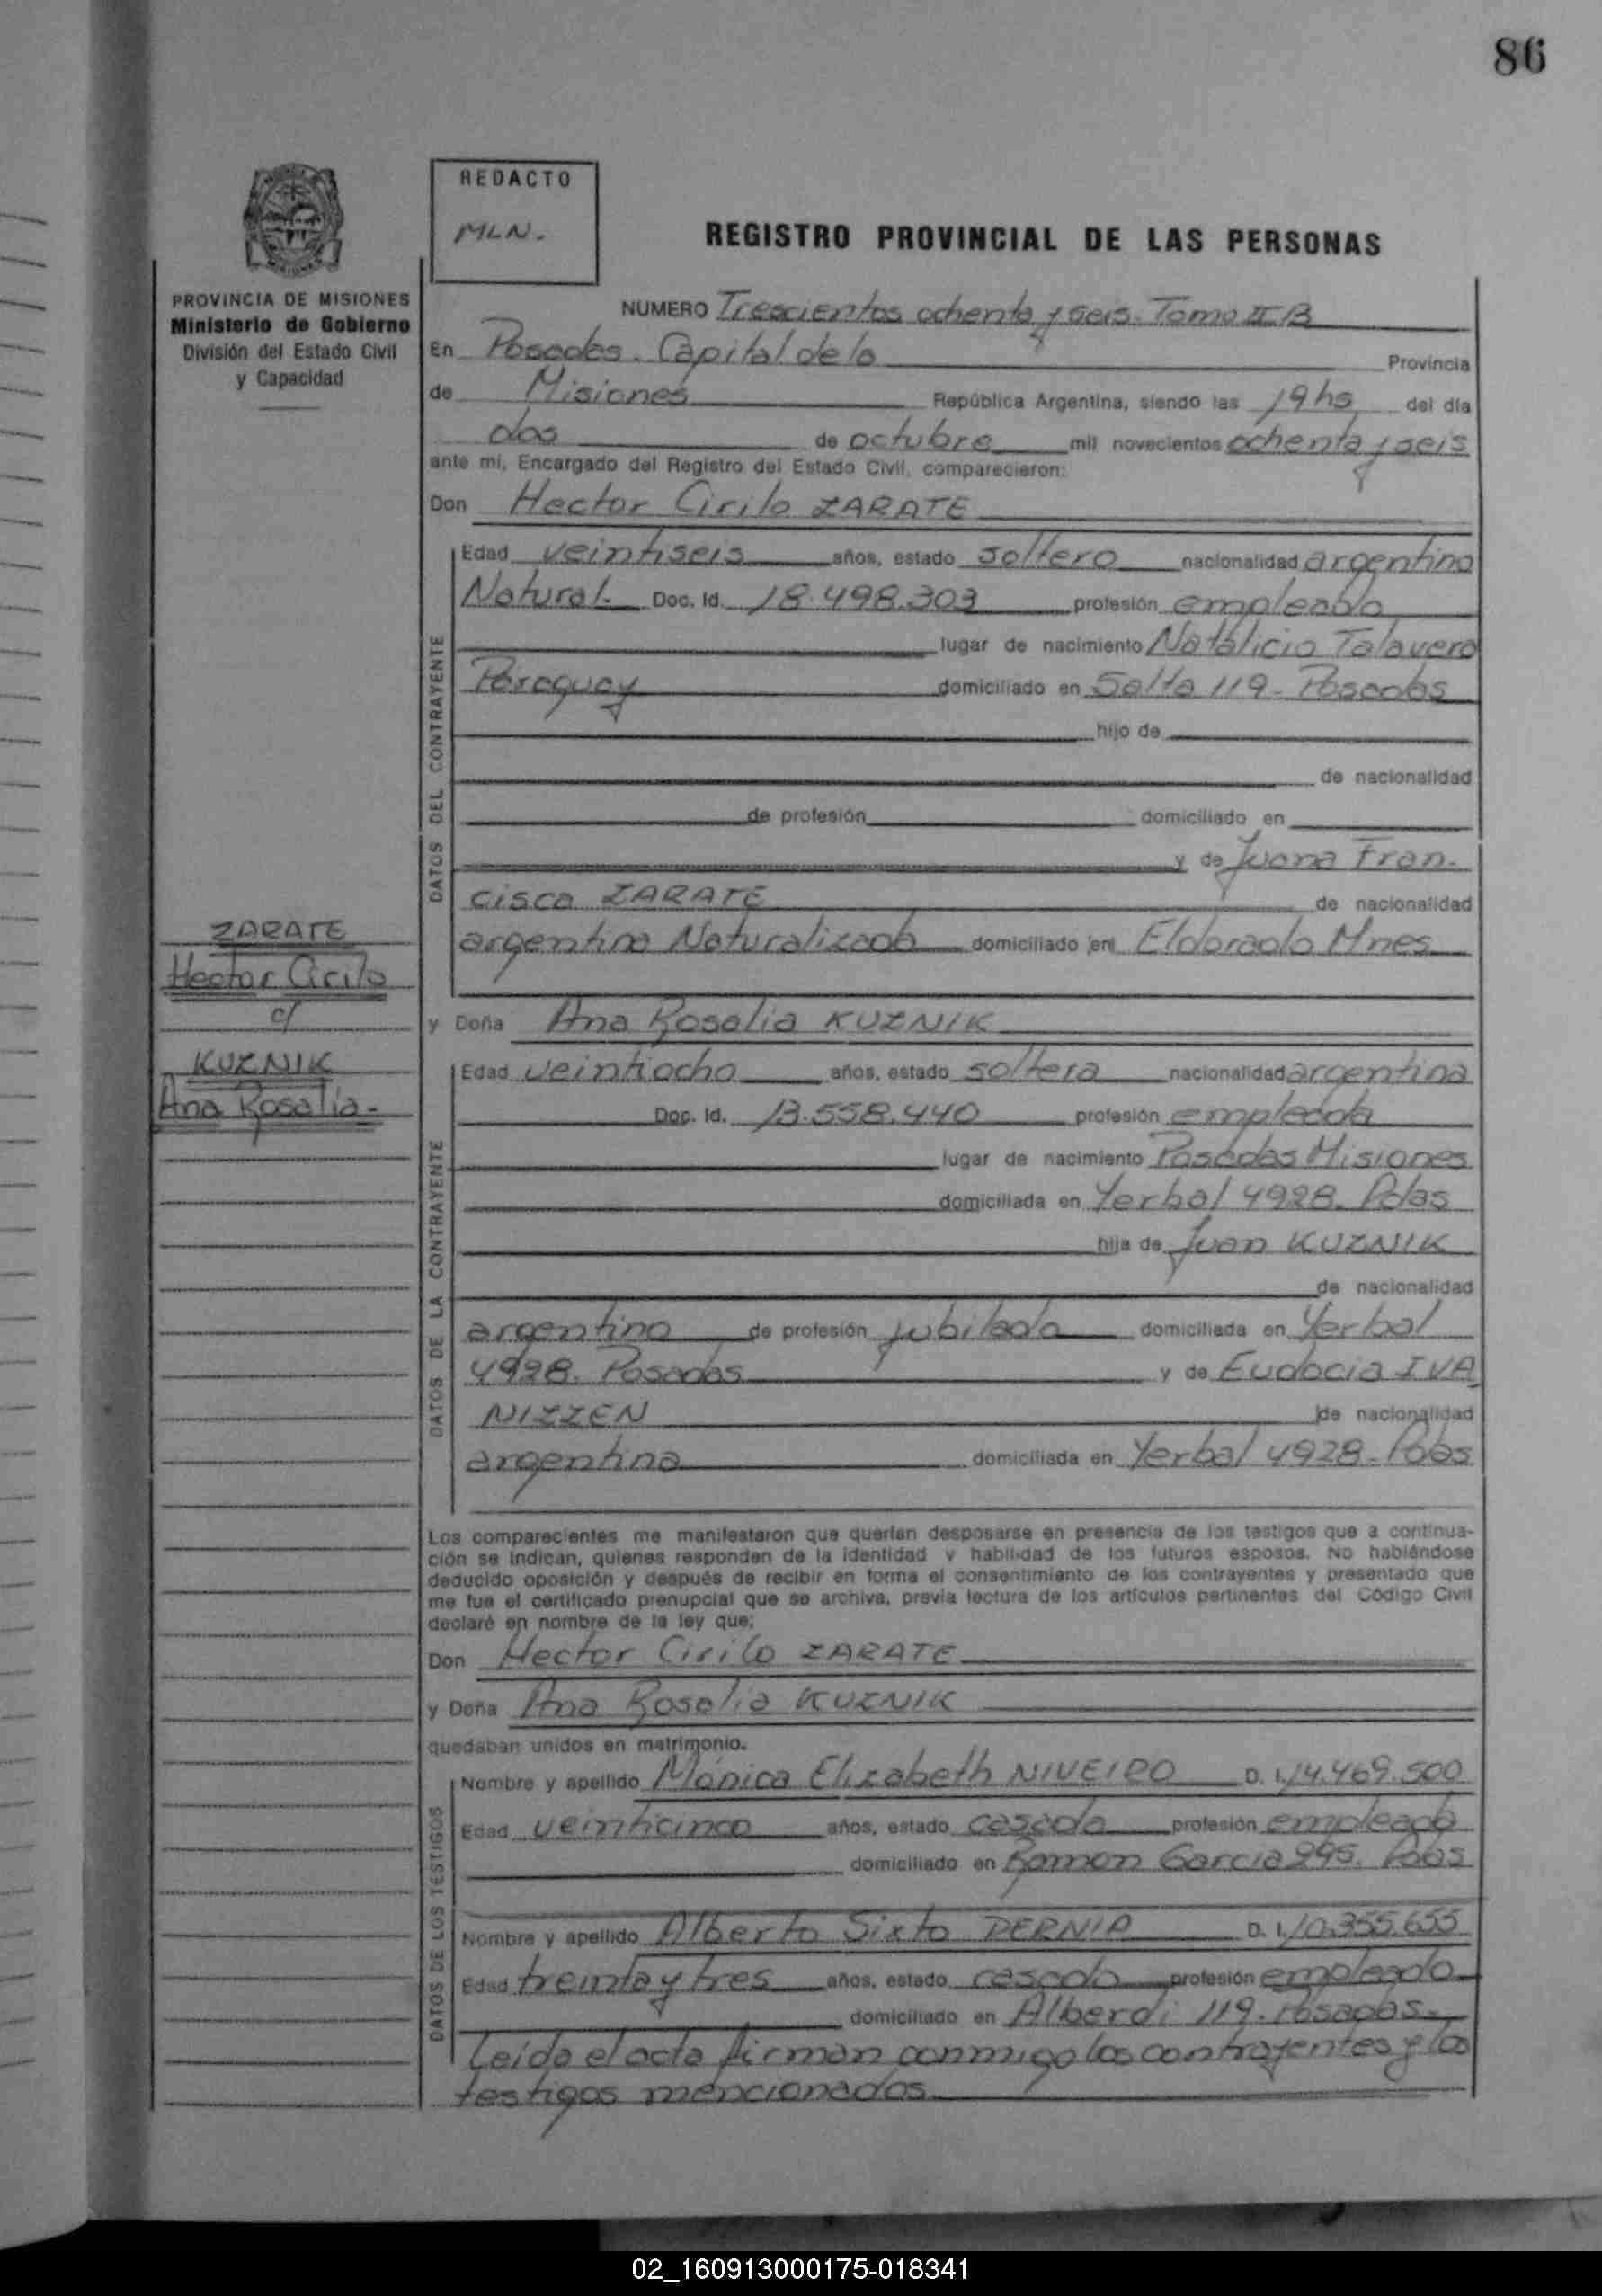 86
REDACTO
MLN.
REGISTRO PROVINCIAL DE LAS PERSONAS
PROVINCIA DE MISIONES
Ministerio de Gobierno
División del Estado Civil
y Capacidad
NUMERO Trescientos ochenta y seis. Tomo II B
En Posadas. Capital de la Provincia
de Misiones República Argentina, siendo las 19 hs del día
dos de octubre mil novecientos ochenta y seis
ante mí, Encargado del Registro del Estado Civil, comparecieron:
Don Hector Cirilo ZARATE
DATOS DEL CONTRAYENTE
Edad veintiseis años, estado soltero nacionalidad argentino
Natural. Doc. Id. 18.498.303 profesión empleado
lugar de nacimiento Natalicio Talavera
Paraguay domiciliado en Salta 119 - Posadas
hijo de
de nacionalidad
de profesión domiciliado en
y de Juana Fran-
cisca ZARATE de nacionalidad
argentina Naturalizada domiciliado en Eldorado Mnes
ZARATE
Hector Cirilo
c/
KUZNIK
Ana Rosalia.-
y Doña Ana Rosalia KUZNIK
DATOS DE LA CONTRAYENTE
Edad veintiocho años, estado soltera nacionalidad argentina
Doc. Id. 13.558.440 profesión empleada
lugar de nacimiento Posadas Misiones
domiciliada en Yerbal 4928. Pdas
hija de Juan KUZNIK
de nacionalidad
argentino de profesión jubilado domiciliada en Yerbal
4928. Posadas y de Eudocia IVA
NIZZEN de nacionalidad
argentina domiciliada en Yerbal 4928 - Pdas
Los comparecientes me manifestaron que querían desposarse en presencia de los testigos que a continua-
ción se indican, quienes responden de la identidad y habilidad de los futuros esposos. No habiéndose
deducido oposición y después de recibir en forma el consentimiento de los contrayentes y presentado que
me fue el certificado prenupcial que se archiva, previa lectura de los artículos pertinentes del Código Civil
declaré en nombre de la ley que:
Don Hector Cirilo ZARATE
y Doña Ana Rosalia KUZNIK
quedaban unidos en matrimonio.
DATOS DE LOS TESTIGOS
Nombre y apellido Mónica Elizabeth NIVEIRO D. I. 14.469.500
Edad veinticinco años, estado casada profesión empleada
domiciliado en Ramon Garcia 295. Pdas
Nombre y apellido Alberto Sixto DERNA D. I. 10.355.655
Edad treinta y tres años, estado casado profesión empleado
domiciliado en Alberdi 119. Posadas.-
Leida el acta firman conmigo los contrayentes y los
testigos mencionados.
02_160913000175-018341